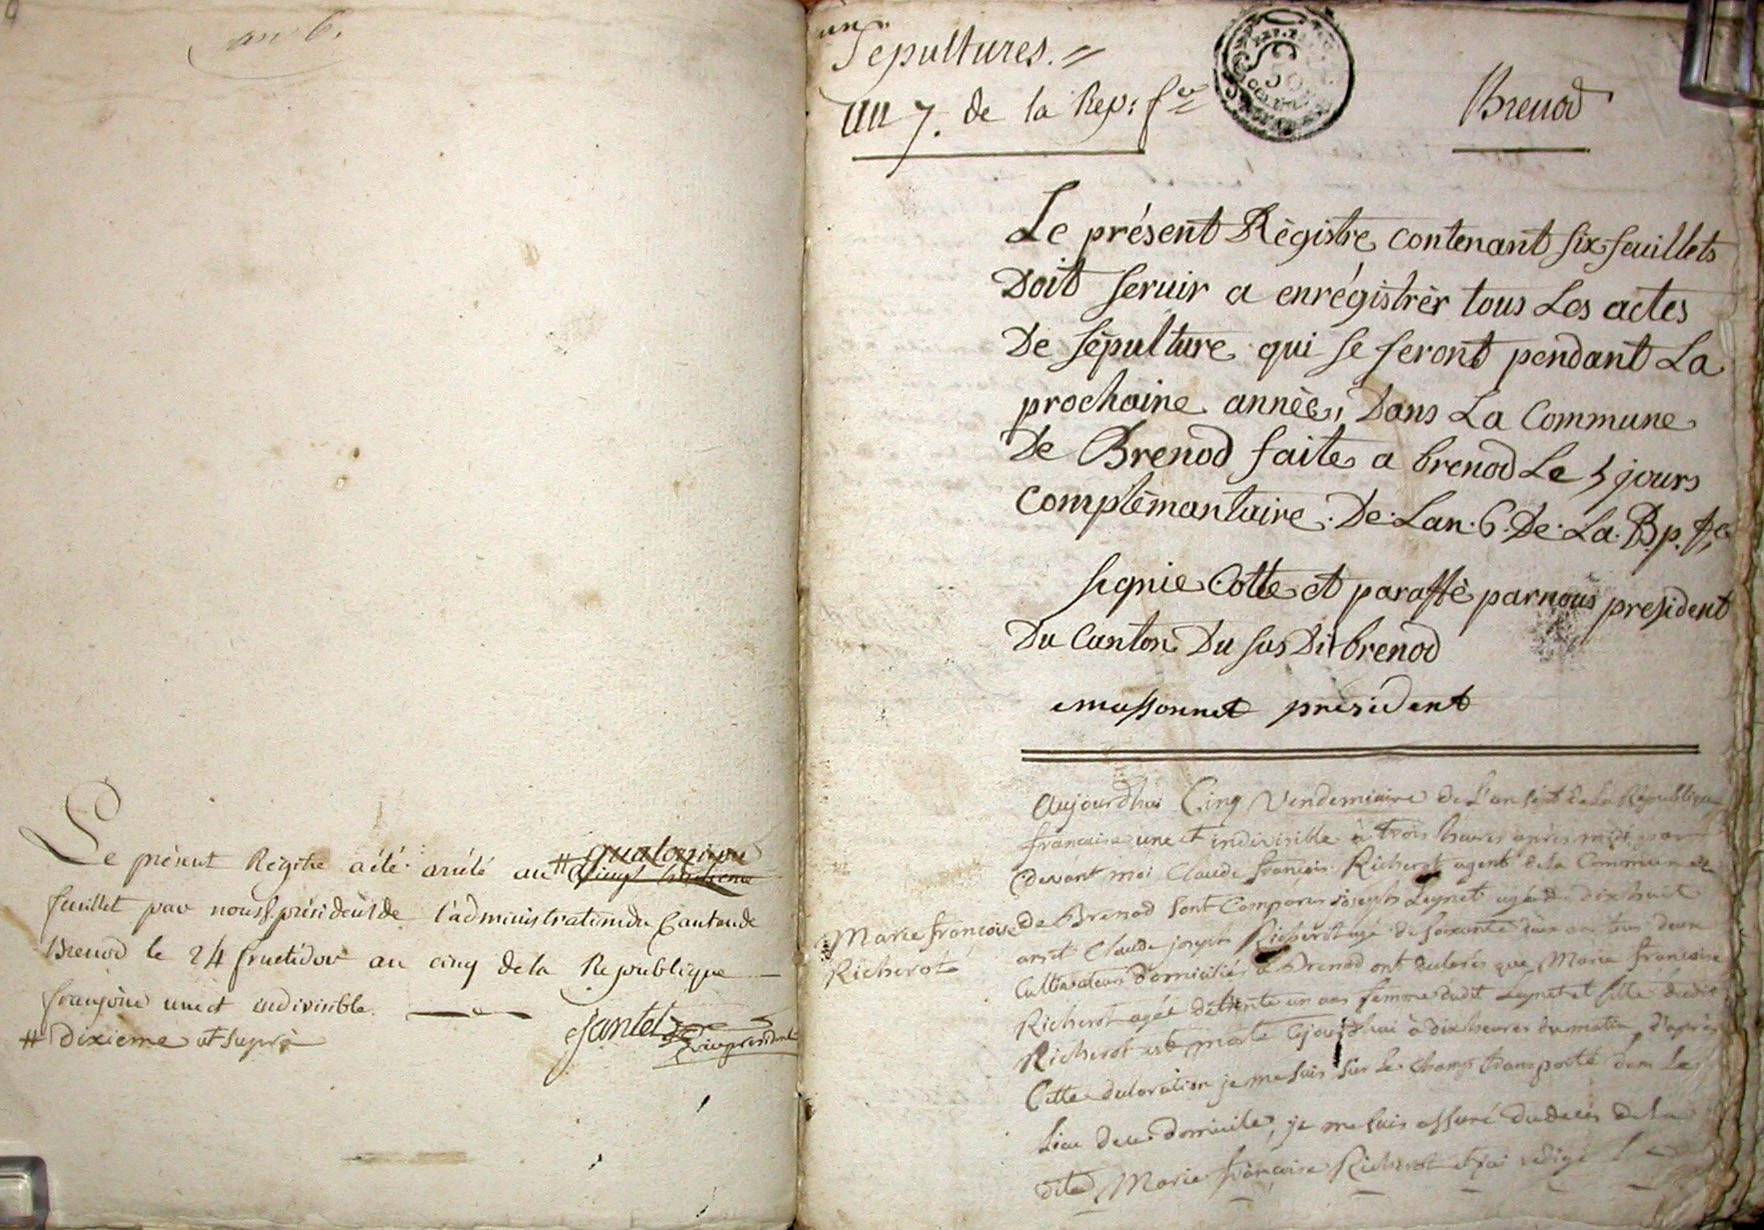 an 6.
Le présent Régitre a été arrêté au #
feuillet par nous président de l'administration du Canton de
Brenod le 24 fructidor an cinq de la République
françoise une et indivisible.
# dixieme ut supra
Jantet
vice président
Sepultures. =
an 7. de la Rep: fse
Brenod
Le présent Règistre contenant six feuillets
Doit servir a enrégistrèr tous Les actes
De sèpulture qui se feront pendant La
prochaine annèe, Dans La Commune
De Brenod faite a brenod Le 5 jours
Complèmantaire. De. Lan. 6. De. La. Rp. fse
signie Cotte et paraffè par nous president
Du Canton Du sus Dit brenod
massonnet président
Marie françoise
Richerot
Aujourdhui Cinq Vendemiaire de L'an sept de la République
francaise une et indivisible à trois heures après midi par
devant moi Claude françois Richerot agent de la Commune
de Brenod sont Comparus Joseph Leynet agé de dix huit
ans et Claude joseph Richerot agé de soixante ans tous deux
Cultivateurs domiciliés a Brenod ont déclarés que Marie francoise
Richerot agée de trente un ans femme dudit Leynet et fille dudit
Richerot est morte Cejourdhui à dix heures du matin, d'après
Cette déclaration je me suis sur le champ transporté dans Le
Lieu de ce domicile, je me suis assuré du décés de la
dite Marie francaise Richerot et j'ai rédigé